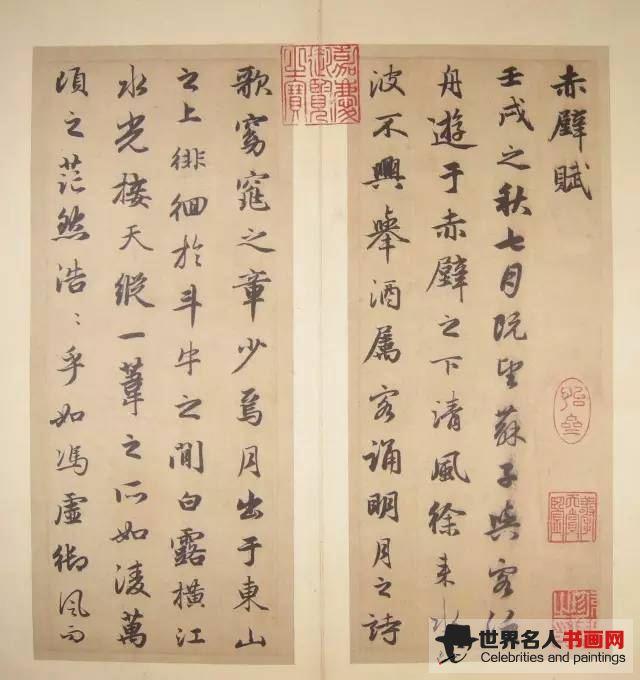 赤壁賦
壬戌之秋七月既望蘇子與客泛
舟遊于赤壁之下清風徐来水
波不興舉酒屬客誦明月之詩
歌窈窕之章少焉月出于東山
之上徘徊於斗牛之間白露橫江
水光接天縱一葦之所如凌萬
頃之茫然浩〻乎如馮虛御風而
嘉慶御覽之寶
世界名人书画网
Celebrities and painting